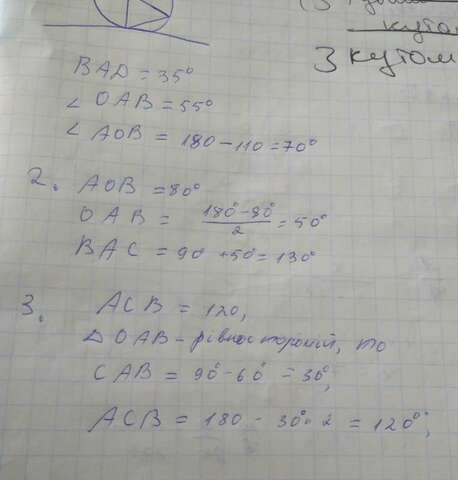 кутом
3 кутом
BAD = 35°
∠ OAB = 55°
∠ AOB = 180 - 110 = 70°
2. AOB = 80°
OAB = (180° - 80°)/2 = 50°
BAC = 90° + 50° = 130°
3. ACB = 120,
Δ OAB - рівносторонній, то
CAB = 90° - 60° = 30°;
ACB = 180 - 30° · 2 = 120°;